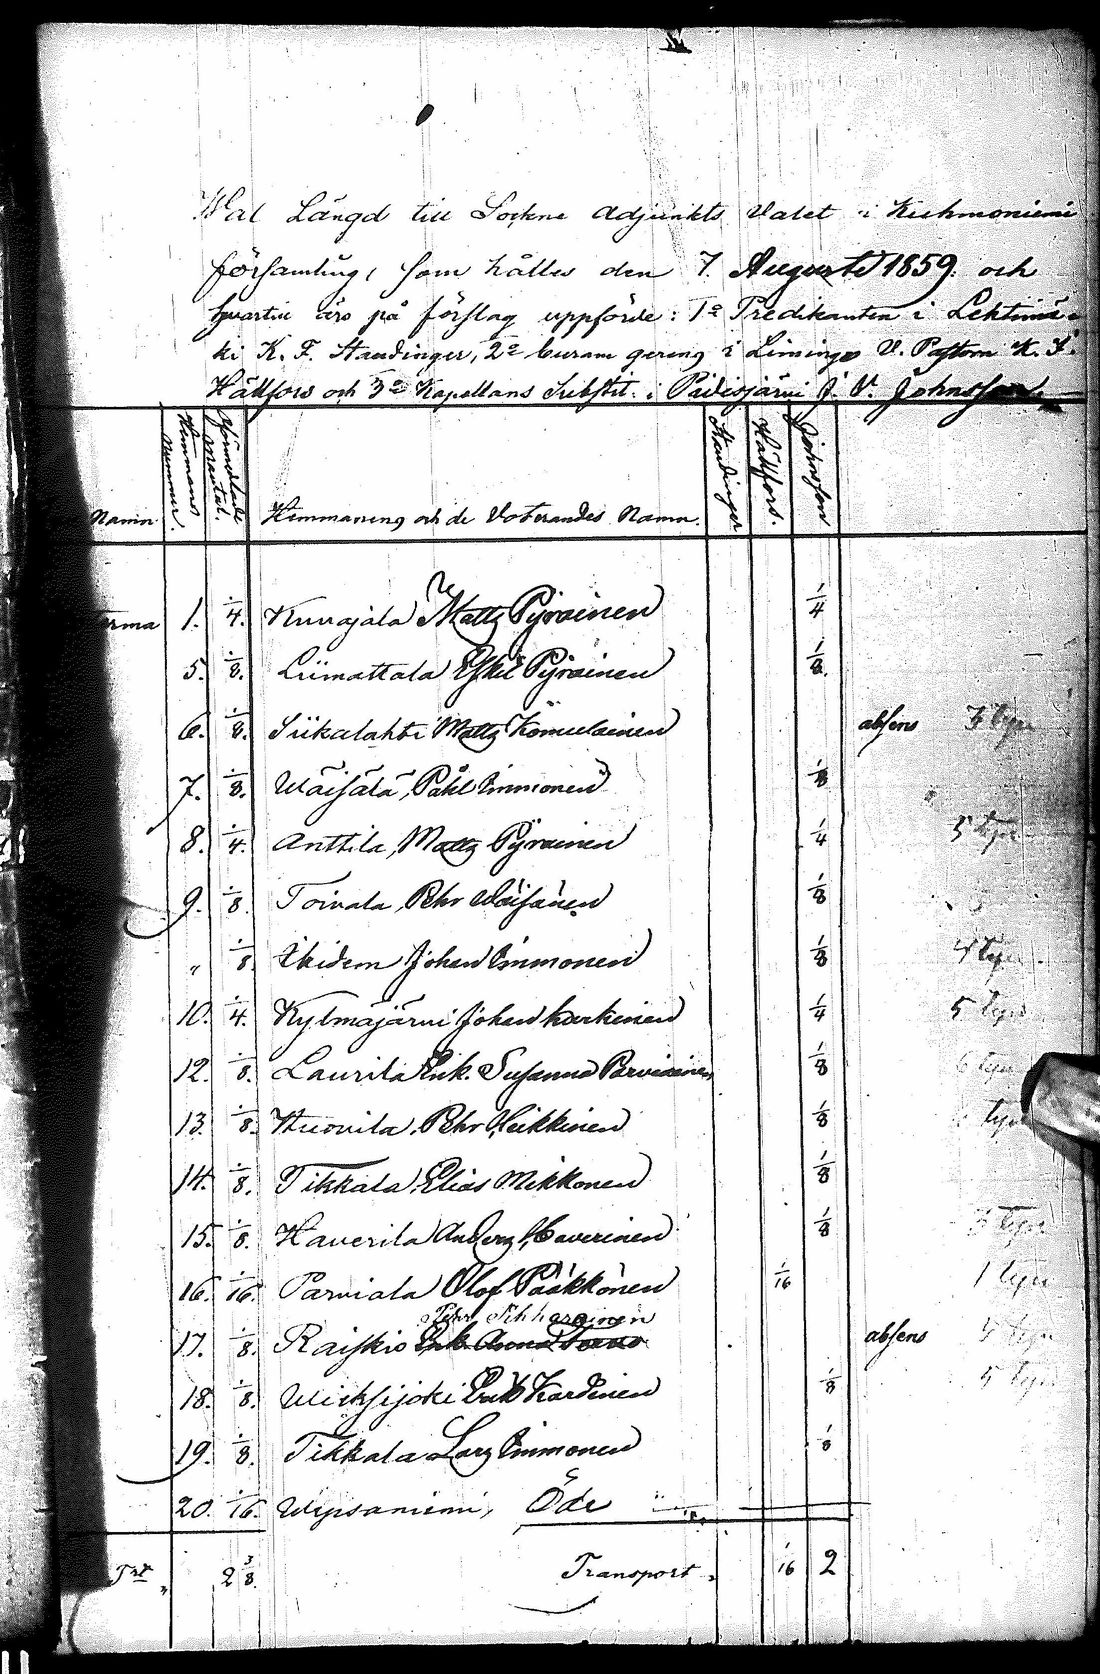 Wal Längd till Sockne adjunkts Valet i Kuhmoniemi
församling, som hålles den 7 Augusti 1859. och
hvartill äro på förslag uppförde: 1o Predikanten i Lehtimä-
ki K. F. Staudinger, 2o Curam gerens i Limingo V. Pastorn K. F.
Hällfors och 3o Kapellans Substit. i Pidisjärvi J. V. Johnsson.
Namn Hemmans Nummer. Förmedlade Mantal. Hemmanens och de Voterandes Namn. Staudinger Hällfors. Johnsson
1. 1/4. Kuurajala Matts Pyrainen 1/4
5. 1/8. Liimattala Eskil Pyrainen 1/8.
6. 1/8. Siikalahti Matts Komulainen absens
7. 1/8. Wäisälä, Påhl Immonen 1/8
8. 1/4. Anttila, Matts Pyrainen 1/4 5
9. 1/8. Toivala, Pehr Wäisänen 1/8
" 1/8 Ibidem Johan Immonen 1/8 4
10. 1/4. Kylmäjärvi Johan Karkinen 1/4 5
12. 1/8. Laurila Enk. Susanna Parviainen 1/8 6
13. 1/8. Huovila, Pehr Heikkinen 1/8
14. 1/8. Tikkala, Elias Mikkonen 1/8
15. 1/8. Haverila Anders Haverinen 1/8
16. 1/16. Parviala Olof Pääkkönen 1/16 1
Pehr Sihvarainen
17. 1/8. Raiskio Enk. Anna absens
18. 1/8. Wieksijoki Erik Kardinen 1/8 5
19. 1/8. Tikkala Lars Immonen 1/8
20. 1/16. Wepsaniemi, Öde
Trt 2 3/8. Transport. 1/16 2